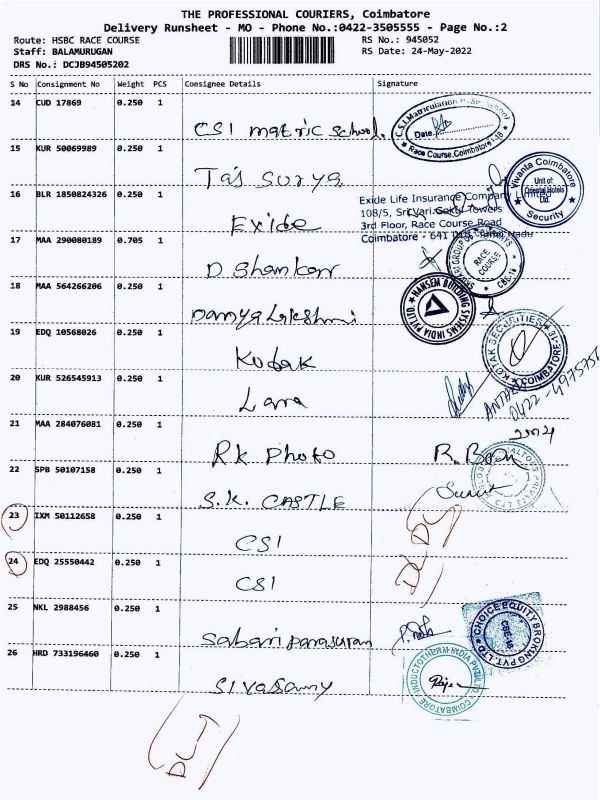 THE PROFESSIONAL COURIERS, Coimbatore
Delivery Runsheet - MO - Phone No.:0422-3505555 - Page No.:2
Route: HSBC RACE COURSE RS No.: 945052
Staff: BALAMURUGAN RS Date: 24-May-2022
DRS No.: DCJB94505202
S No Consignment No Weight PCS Consignee Details Signature
14 CUD 17869 0.250 1
CSI matric school.
C.S.I. Matriculation Hr. Sec. School
Date
Race Course, Coimbatore-18
15 KUR 50069989 0.250 1
Taj Surya
Vivanta Coimbatore
Unit of:
Oriental Hotels
Ltd.
Security
16 BLR 1850824326 0.250 1
Exide
Exide Life Insurance Company Limited
108/5, Sri Vari Gokul Towers
3rd Floor, Race Course Road
Coimbatore - 641 018. Tamil Nadu
17 MAA 290080189 0.705 1
D Shankar
RACE
COURSE
CBE-18
18 MAA 564266206 0.250 1
Danya Lakshmi
HANSEM BUILDING SYSTEMS INDIA PVT LTD
19 EDQ 10568026 0.250 1
Kodak
KOTAK SECURITIES
COIMBATORE-18
20 KUR 526545913 0.250 1
Lara
0422-4975756
21 MAA 284076081 0.250 1
RK Photo
R. Boon
22 SPB 50107158 0.250 1
S.K. CASTLE
23 IXM 50112658 0.250 1
CSI
24 EDQ 25550442 0.250 1
CSI
DL DL
25 NKL 2988456 0.250 1
Sabari parasuram
CHOICE EQUITY BROKING PVT. LTD
CBE-18
26 HRD 733196460 0.250 1
Sivasamy
INDUCTOTHERM INDIA PVT LTD
COIMBATORE